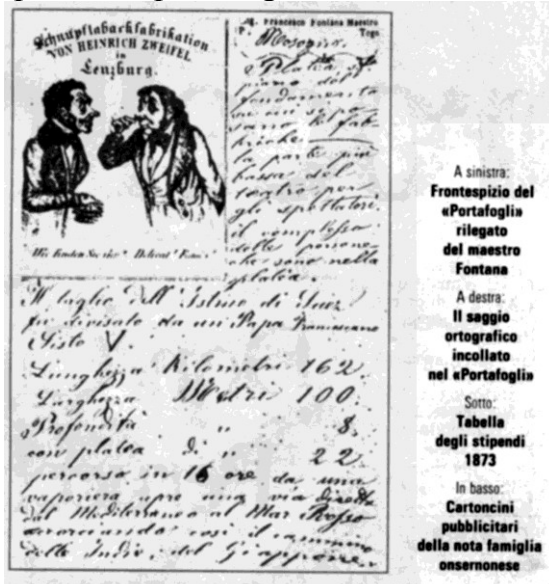 Schnupftabackfabrikation
VON HEINRICH ZWEIFEL
in
Lenzburg.
Wie finden Sie ihn? Delicat! Fein!
M. Francesco Fontana Maestro
P. Tegn
Mosogno.
Platea
piano del
fondamento
su cui si po
sano le fab
briche.
la parte più
bassa del
teatro per
gli spettatori.
il complesso
delle persone
che sono nella
platea.
Il taglio dell'Istmo di Suez
fu divisato da un Papa Francescano
Sisto V.
Lunghezza Kilometri 162.
Larghezza Metri 100.
Profondità " 8.
con platea di " 22
percorsa in 16 ore da una
vaporiera apre una via diretta
dal Mediterraneo al Mar Rosso
accorciando così il cammino
delle Indie, del Giappone,
A sinistra:
Frontespizio del
«Portafogli»
rilegato
del maestro
Fontana
A destra:
Il saggio
ortografico
incollato
nel «Portafogli»
Sotto:
Tabella
degli stipendi
1873
In basso:
Cartoncini
pubblicitari
della nota famiglia
onsernonese